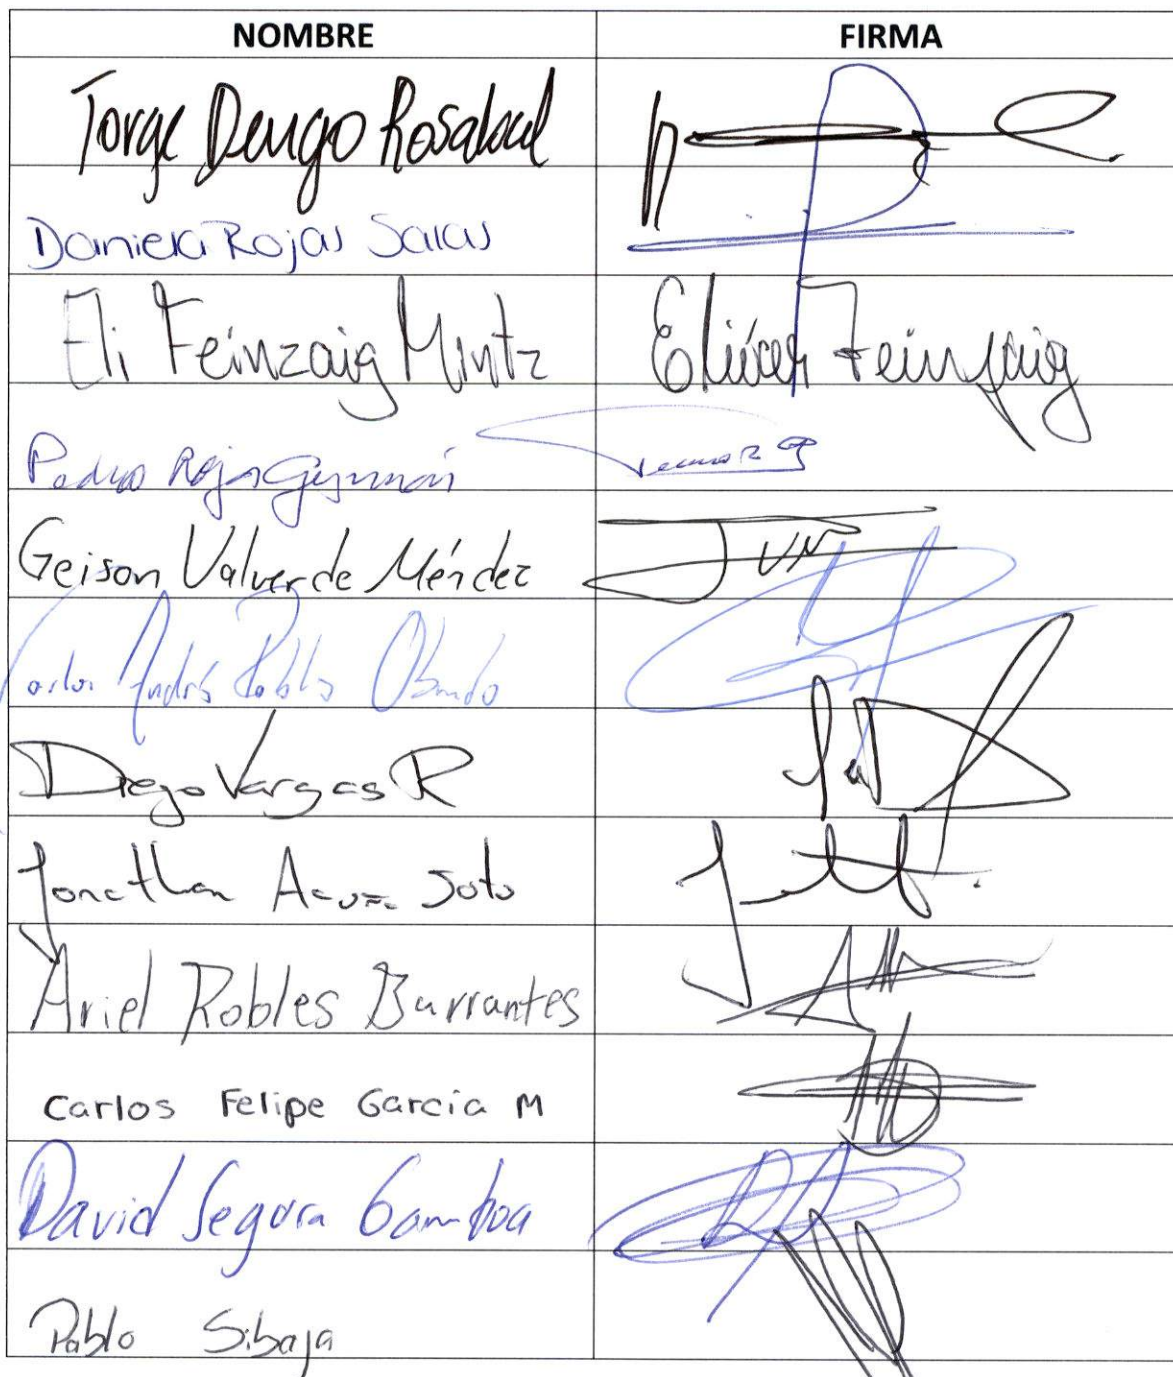 NOMBRE FIRMA
Jorge Dengo Rosabal
Daniela Rojas Salas
Eli Feinzaig Mintz Eliécer Feinzaig
Pedro Rojas Guzmán
Geison Valverde Méndez JVM
Carlos Andrés Robles Obando
Diego Vargas R
Jonathan Acuña Soto
Ariel Robles Barrantes
Carlos Felipe García M
David Segura Gamboa
Pablo Sibaja